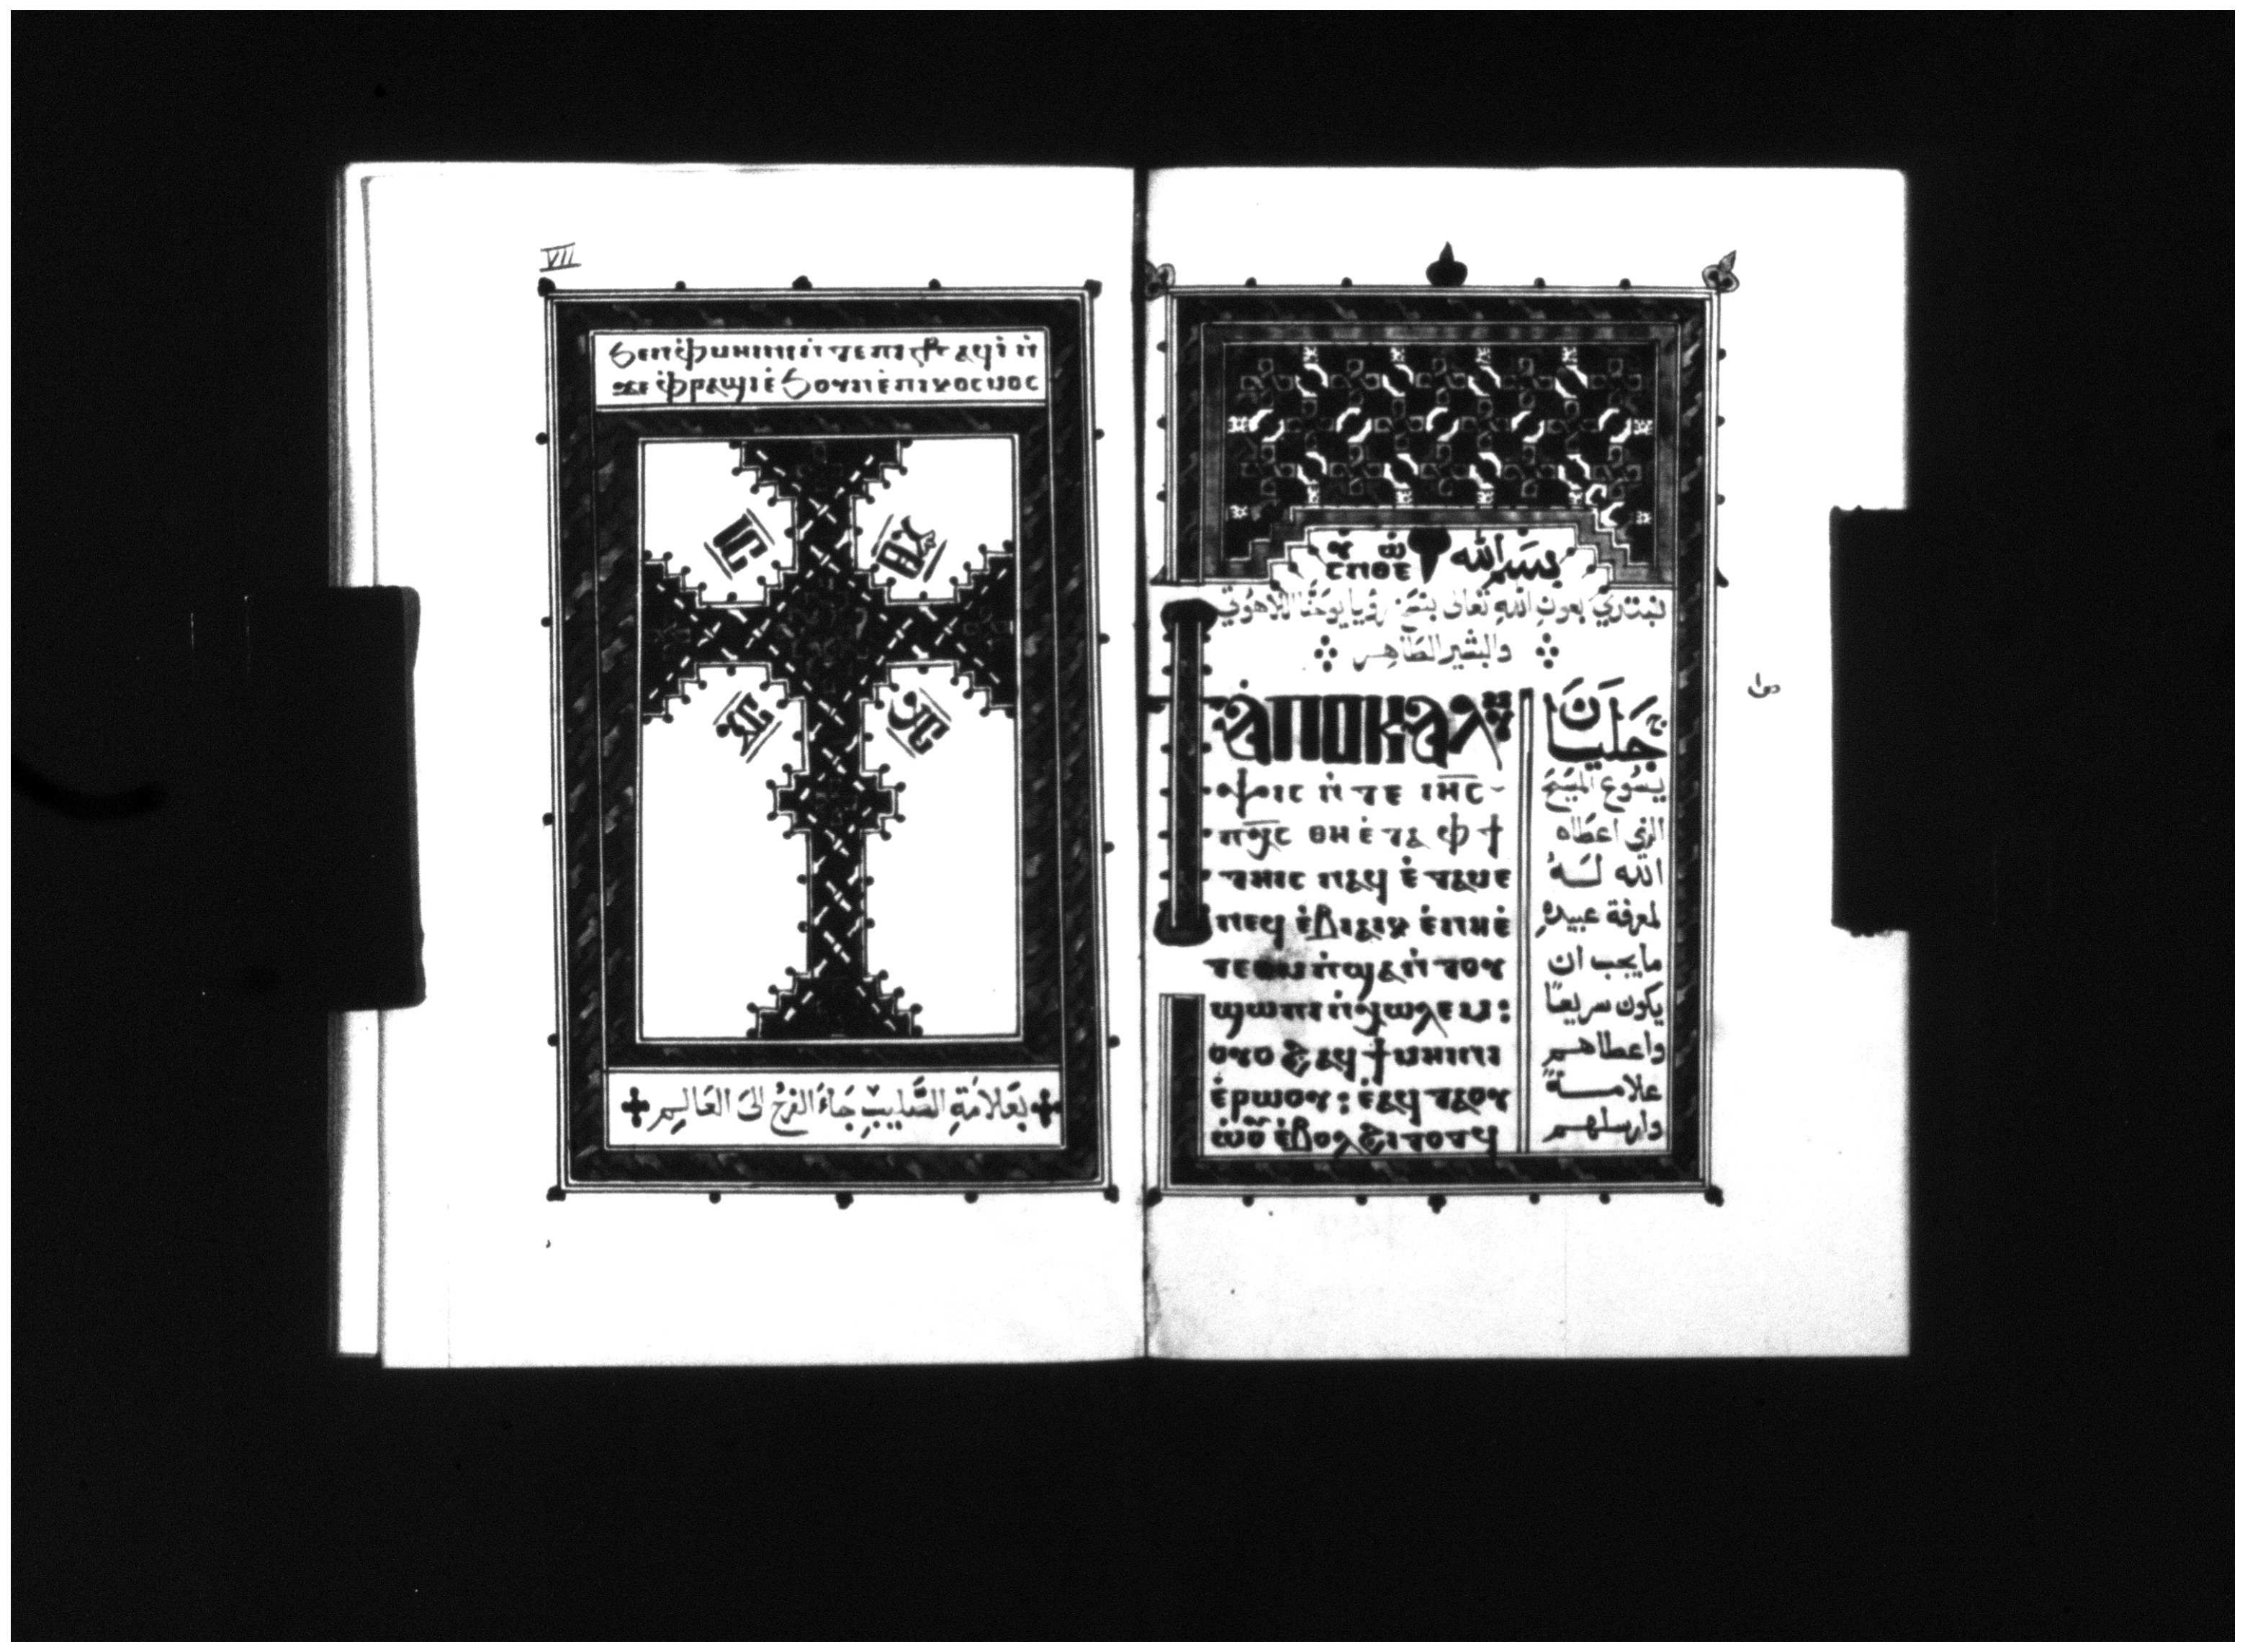 VII
ϧⲉⲛ ⲫ̇ⲙⲏⲓⲛⲓ ⲛ̇ⲧⲉ ⲡⲓ ⲁϥⲓ̇ ⲛ̇
ϫⲉ ⲫ̇ⲣⲁϣⲓ ⲉ̇ϧⲟⲩⲛ ⲉ̇ⲡⲓⲕⲟⲥⲙⲟⲥ
بعَلاَمَةِ الصَّليبِ جَاءَ الفرَحُ الىَ العَالمِ
بسم الله
نبتدي بعون الله تعالى بنسخ رؤيا يوحَنَّا اللاهوتي
والبشير الطَاهِر
ⲁ̇ⲡⲟⲕⲁⲗⲩ
ⲯⲓⲥ ⲛ̇ⲧⲉ ⲓⲏ̅ⲥ̅
ⲡⲭ̅ⲥ̅ ⲑⲏ ⲉ̇ⲧⲁ ⲫϯ
ⲧⲏⲓⲥ ⲛⲁϥ ⲉ̇ⲧⲁⲙⲉ
ⲛⲉϥ ⲉ̇ⲃⲓⲁⲓⲕ ⲉ̇ⲛⲏⲉ̇
ⲧⲉ ⲛ̇ϣⲁⲛ̇ⲧⲟⲩ
ϣⲱⲡⲓ ⲛ̇ⲭⲱⲗⲉⲙ:
ⲟⲩⲟϩ ⲁϥϯⲙⲏⲓⲛⲓ
ⲉ̇ⲣⲱⲟⲩ: ⲉ̇ⲁϥⲧⲁⲟⲩⲟ
ⲙ̇ⲙⲱⲟⲩ ⲉ̇ⲃⲟⲗ ϩⲓⲧⲟⲧϥ
جَليَانَ
يسُوع المسَيحَ
الذي اعطاه
الله لــهُ
لمعرفة عبيدهِ
ما يجب ان
يكون سريعاً
واعطاهــم
علامـــةً
وارسلهــم